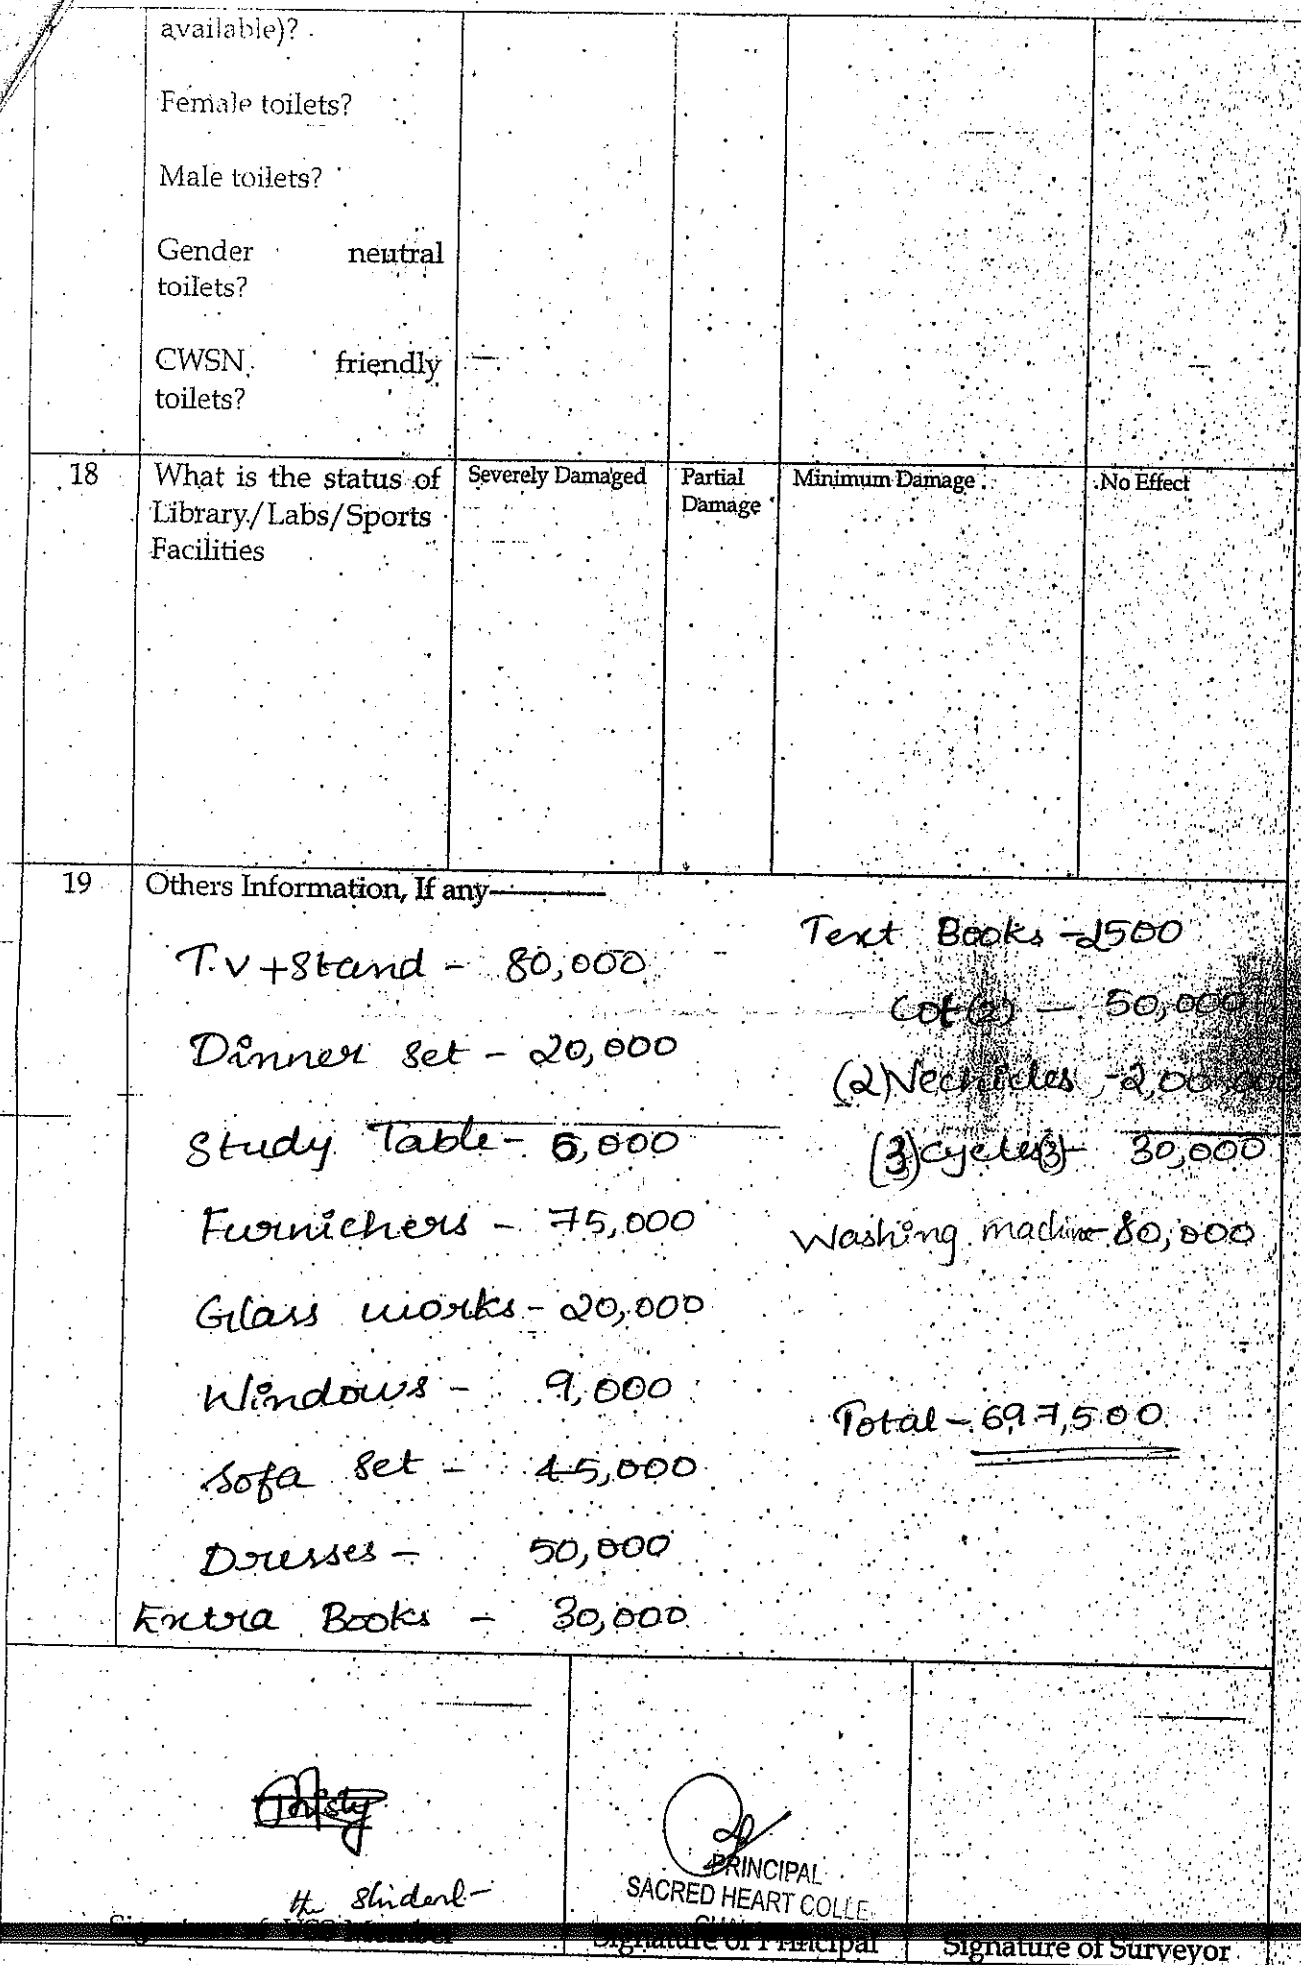 available)?
Female toilets?
Male toilets?
Gender neutral
toilets?
CWSN friendly
toilets?
18 What is the status of Library/Labs/Sports Facilities
Severely Damaged
Partial Damage
Minimum Damage
No Effect
19 Others Information, If any
T.V + Stand - 80,000
Dinner Set - 20,000
Study Table - 6,000
Furnichers - 75,000
Glass works - 20,000
Windows - 9,000
Sofa Set - 45,000
Dresses - 50,000
Extra Books - 30,000
Text Books - 2500
Cot (2) - 50,000
(2) Vechicles - 2,00,000
(3) Cycles (3) - 30,000
Washing machine - 80,000
Total - 6,97,500
the Student
PRINCIPAL
SACRED HEART COLLE
Member
Signature of Principal
Signature of Surveyor